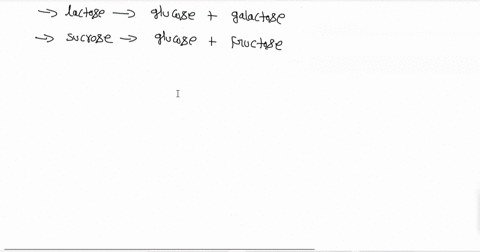 → lactose → glucose + galactose
→ sucrose → glucose + fructose